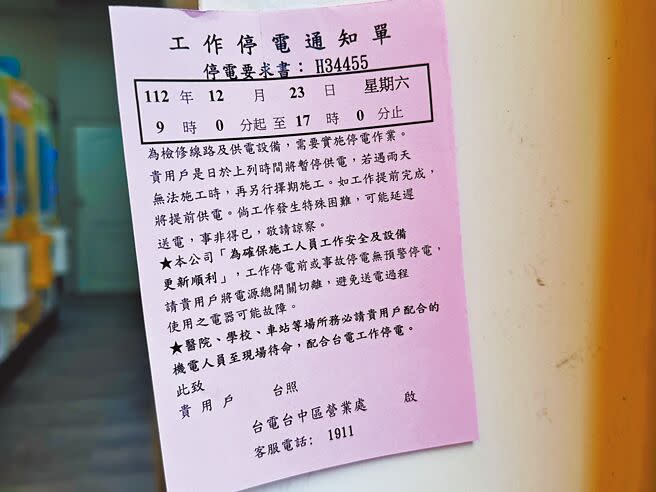 工作停電通知單
停電要求書：H34455
112 年 12 月 23 日 星期六
9 時 0 分起至 17 時 0 分止
為檢修線路及供電設備，需要實施停電作業。
貴用戶是日於上列時間將暫停供電，若遇雨天
無法施工時，再另行擇期施工。如工作提前完成，
將提前供電。倘工作發生特殊困難，可能延遲
送電，事非得已，敬請諒察。
★本公司「為確保施工人員工作安全及設備
更新順利」，工作停電前或事故停電無預警停電，
請貴用戶將電源總開關切離，避免送電過程
使用之電器可能故障。
★醫院、學校、車站等場所務必請貴用戶配合的
機電人員至現場待命，配合台電工作停電。
此致
貴用戶 台照
台電台中區營業處 啟
客服電話：1911